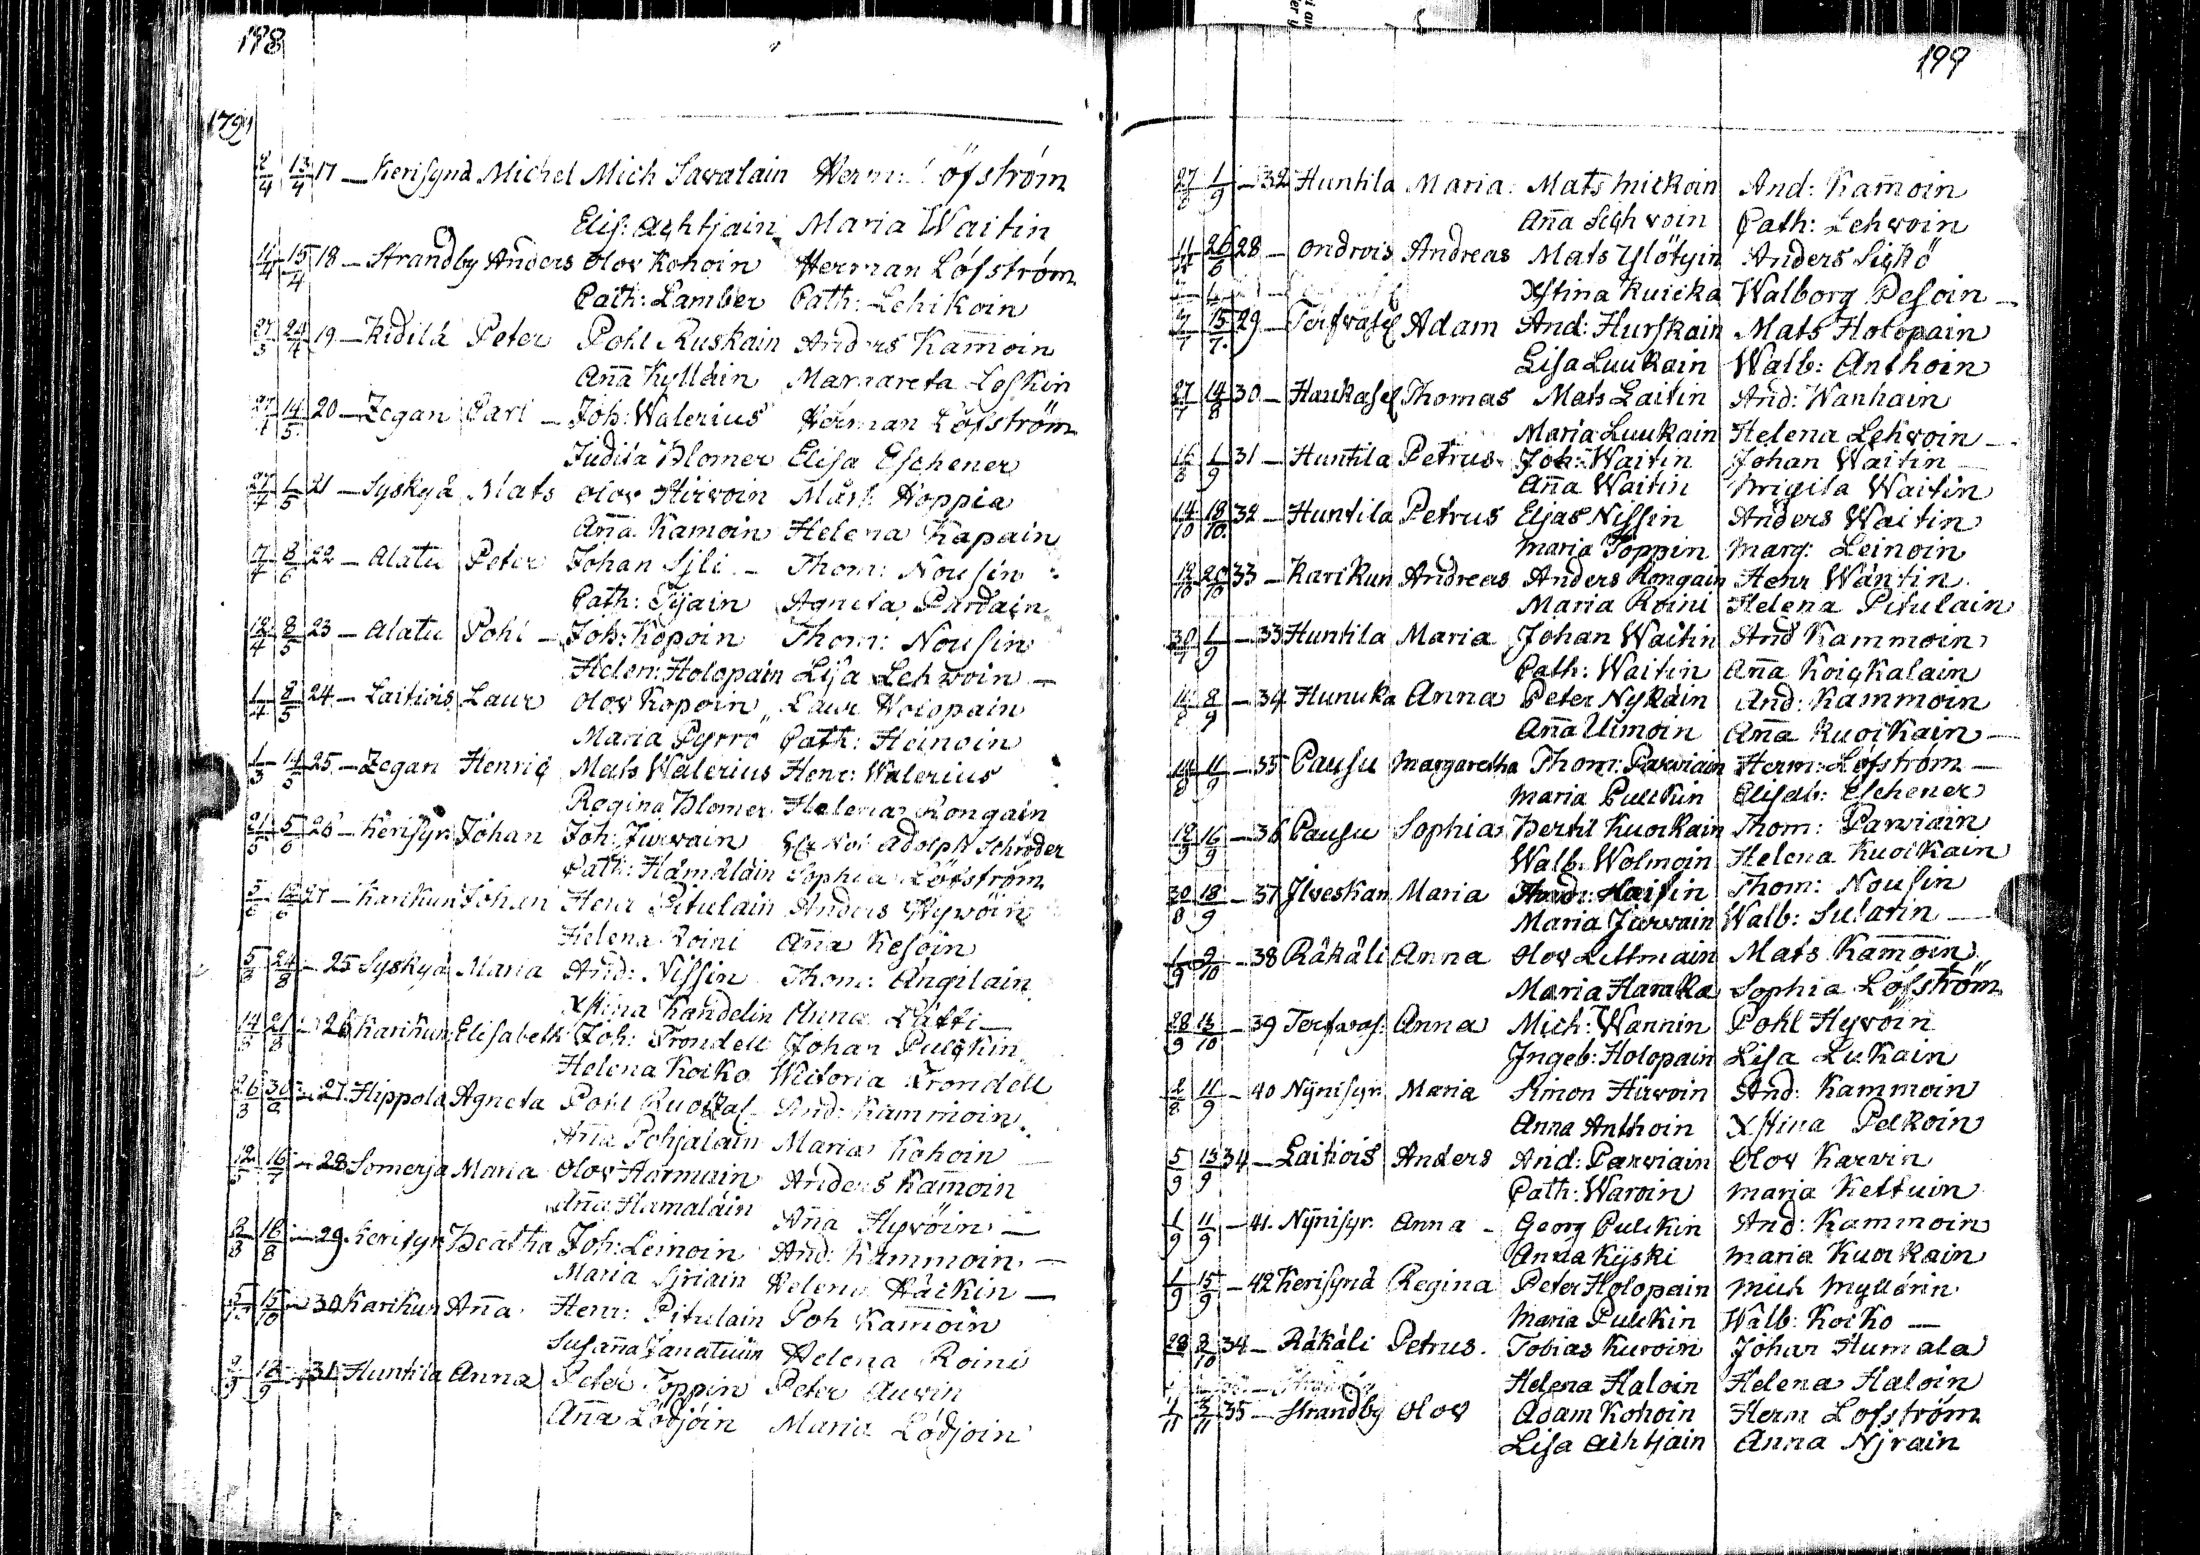 198
1791
2/4 13/4 17 — Kerisynd Michel Mich Savalain Herm: Löfström
Elis: Achtjain Maria Waitin
11/4 15/4 18 — Strandby Anders Olov Kohoin Herman Löfström
Cath: Lamber Cath: Lehikoin
27/3 24/4 19 — Kidilä Peter Pohl Ruskain Anders Kam̄oin
An̄a Kylläin Margareta Leskin
14/5 20 — Zegan Carl — Joh: Walerius Herman Löfström
Judita Blomer Elisa Eschener
27/4 1/5 21 — Syskyä Mats Olov Hirvoin Mårt: Hoppia
An̄a Kamoin Helena Kapain
7/4 8/6 22 — Alatu Peter Johan Sjli — Thom: Nousin
Cath: Tijain Agneta Pardain
12/4 8/5 23 — Alatu Pohl — Joh: Kopoin Thom: Nousin
Helen: Holopain Lisa Lehvoin —
1/4 8/5 24 — Laitiois Laur Olov Kopoin Laur Holopain
Maria Pyrrö Cath: Heinoin
1/3 14/5 25 — Zegan Henric Mats Walerius Henr: Walerius
Regina Blomer Helena Rongain
21/5 5/6 26 — Kerisyn Johan Joh: Jurvain Adolph Schröder
Cath: Hämäläin Sophia Löfström
5/6 12/6 27 — Karikun Johan Henr Pitulain Anders Hyvöin
Helena Roini An̄a Kesoin
5/8 24/8 — 25 Syskyä Maria And: Nissin Thom: Angilain
Xstina Kandelin Anna Lätti —
14/3 21/8 — 26 Karikun Elisabeth Joh: Trondell Johan Pulckin
Helena Koiko Wictoria Trondell
26/3 — 27 Hippola Agneta Pohl And: Kammoin
An̄a Pohjalain Maria Kohoin
12/5 16/7 — 28 Somerja Maria Olov Harmain Anders Kam̄oin
An̄a Hamaläin An̄a Hyvöin —
2/8 16/8 — 29 Kerisyn Beatha Joh: Leinoin And: Kammoin —
Maria Syriain Helena Häckin —
15/10 — 30 Karikun An̄a Henr: Pitulain Poh Kam̄oin
Susan̄a Tanatuin Helena Roini
2/9 12/9 — 31 Huntila Anna Peter Toppin Peter Auvin
An̄a Lödjöin Maria Lödjoin
199
27/8 1/9 — 32 Huntila Maria Mats Mickoin And: Kam̄oin
An̄a Sighvoin Cath: Lehvoin
26/6 28 — Ondrois Andreas Mats Ylötyin Anders Sickö
Xstina Kuicka Walborg Pesoin —
15/7 29 — Tersvase Adam And: Hurskain Mats Holopain
Lisa Luukain Walb: Anthoin
27/7 14/8 30 — Haukase Thomas Mats Laitin And: Wanhain
Maria Luukain Helena Lehvoin —
16/8 1/9 31 — Huntila Petrus Joh: Waitin Johan Waitin —
An̄a Waitin Brigita Waitin
14/10 18/10 32 — Huntila Petrus Elias Nissin Anders Waitin
Maria Toppin Marg: Leinoin
19/10 20/10 33 — Karikun Andreas Anders Rongain Henr Wäntin
Maria Roini Helena Pitulain
30/7 1/9 — 33 Huntila Maria Johan Waitin And Kammoin
Cath: Waitin An̄a Koickalain
8/9 — 34 Hunuka Anna Peter Nykäin And: Kammoin
An̄a Uimoin An̄a Kuoikain —
14/8 11/9 — 35 Pausu Margaretha Thom: Parviain Herm: Löfström —
Maria Pulckin Elisab: Eschener
12/9 16/9 — 36 Pausu Sophia Bertil Kuoikain Thom: Parviain
Walb: Wolmoin Helena Kuoikain
30/8 18/9 — 37 Ilveskan Maria And: Haisin Thom: Nousin
Maria Jarvain Walb: Sularin —
1/9 9/10 — 38 Räkäli Anna Olov Lettmain Mats Kam̄oin
Maria Harakka Sophia Löfström
28/9 13/10 — 39 Tersvas: Anna Mich: Wannin Pohl Hyvoin
Ingeb: Holopain Lisa Lukain
2/8 11/9 — 40 Nynisyn Maria Simon Hirvoin And: Kammoin
Anna Anthoin Xstina Pelkoin
5/9 13/9 34 — Laitiois Anders And: Parviain Olov Karvin
Cath: Waroin Maria Kettuin
1/9 11/9 — 41. Nynisyn. Anna — Georg Pulckin And: Kammoin
Anna Kyski Maria Kuoikain
1/9 15/9 — 42 Kerisynd Regina Peter Holopain Mich Myllärin
Maria Pulckin Walb: Koiko —
28 2/10 34 — Räkäli Petrus. Tobias Kuroin Johan Humala
Helena Haloin Helena Haloin
1/11 3/11 35 — Strandby Olov Adam Kohoin Herm Lofström
Lisa Aihtjain Anna Njrain